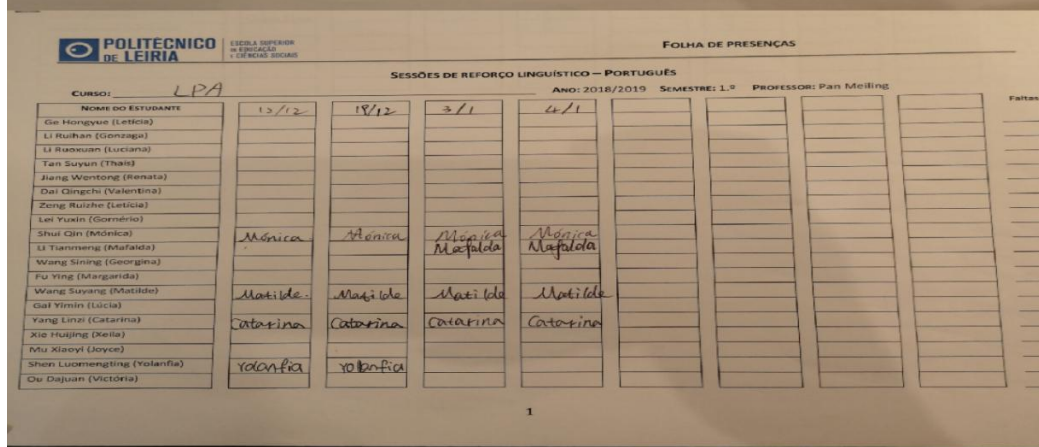 POLITÉCNICO DE LEIRIA
ESCOLA SUPERIOR DE EDUCAÇÃO E CIÊNCIAS SOCIAIS
FOLHA DE PRESENÇAS
SESSÕES DE REFORÇO LINGUÍSTICO – PORTUGUÊS
CURSO: LPA ANO: 2018/2019 SEMESTRE: 1.º PROFESSOR: Pan Meiling
NOME DO ESTUDANTE 12/12 19/12 3/1 4/1 Faltas
Ge Hongyue (Letícia)
Li Ruihan (Gonzaga)
Li Ruoxuan (Luciana)
Tan Suyun (Thais)
Jiang Wentong (Renata)
Dai Qingchi (Valentina)
Zeng Ruizhe (Letícia)
Lei Yuxin (Gornério)
Shui Qin (Mónica) Mónica Mónica Mónica Mónica
Li Tianmeng (Mafalda) Mafalda Mafalda
Wang Sining (Georgina)
Fu Ying (Margarida)
Wang Suyang (Matilde) Matilde. Matilde Matilde Matilde
Gai Yimin (Lúcia)
Yang Linzi (Catarina) Catarina Catarina Catarina Catarina
Xie Huijing (Xeila)
Mu Xiaoyi (Joyce)
Shen Luomengting (Yolanfia) Yolanfia Yolanfia
Ou Dajuan (Victória)
1